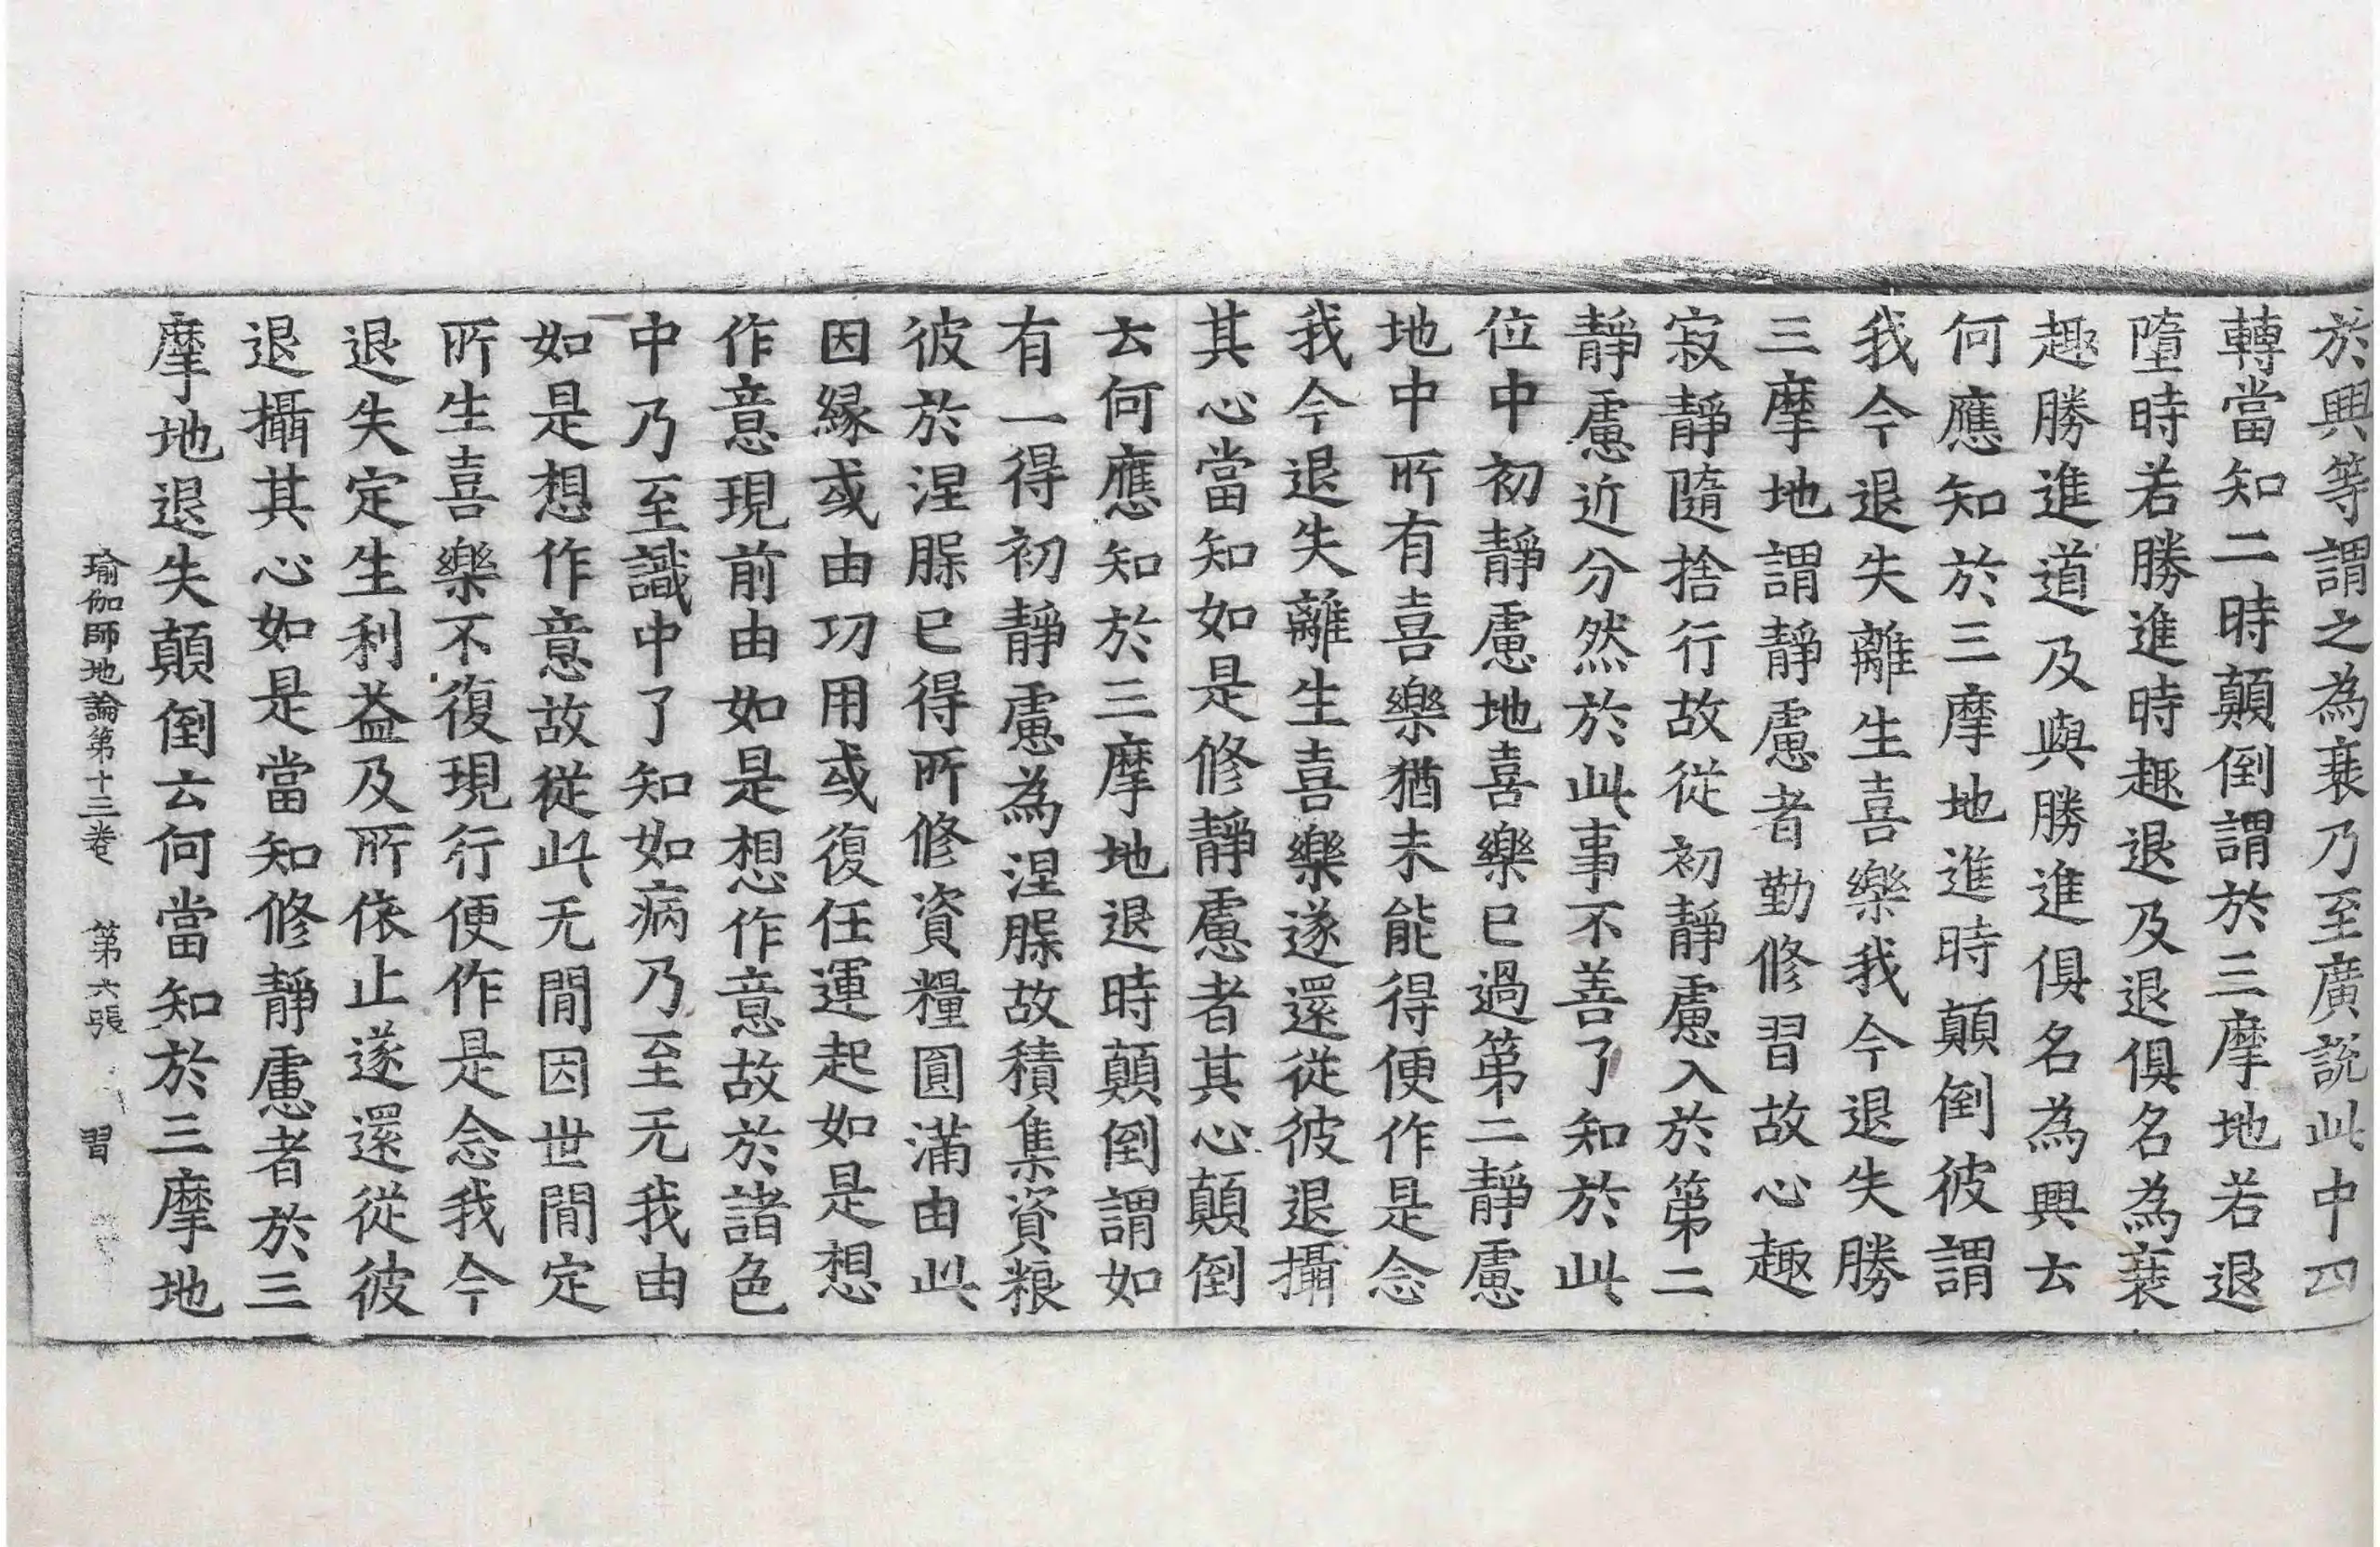 於興等謂之為衰乃至廣說此中四
轉當知二時顛倒謂於三摩地若退
墮時若勝進時趣退及退俱名為衰
趣勝進道及與勝進俱名為興云
何應知於三摩地進時顛倒彼謂
我今退失離生喜樂我今退失勝
三摩地謂靜慮者勤修習故心趣
寂靜隨捨行故從初靜慮入於第二
靜慮近分然於此事不善了知於此
位中初靜慮地喜樂已過第二靜慮
地中所有喜樂猶未能得便作是念
我今退失離生喜樂遂還從彼退攝
其心當知如是修靜慮者其心顛倒
云何應知於三摩地退時顛倒謂如
有一得初靜慮為涅槃故積集資粮
彼於涅槃已得所修資糧圓滿由此
因緣或由功用或復任運起如是想
作意現前由如是想作意故於諸色
中乃至識中了知如病乃至无我由
如是想作意故從此无間因世間定
所生喜樂不復現行便作是念我今
退失定生利益及所依止遂還從彼
退攝其心如是當知修靜慮者於三
摩地退失顛倒云何當知於三摩地
瑜伽師地論第十三卷 第六張 習